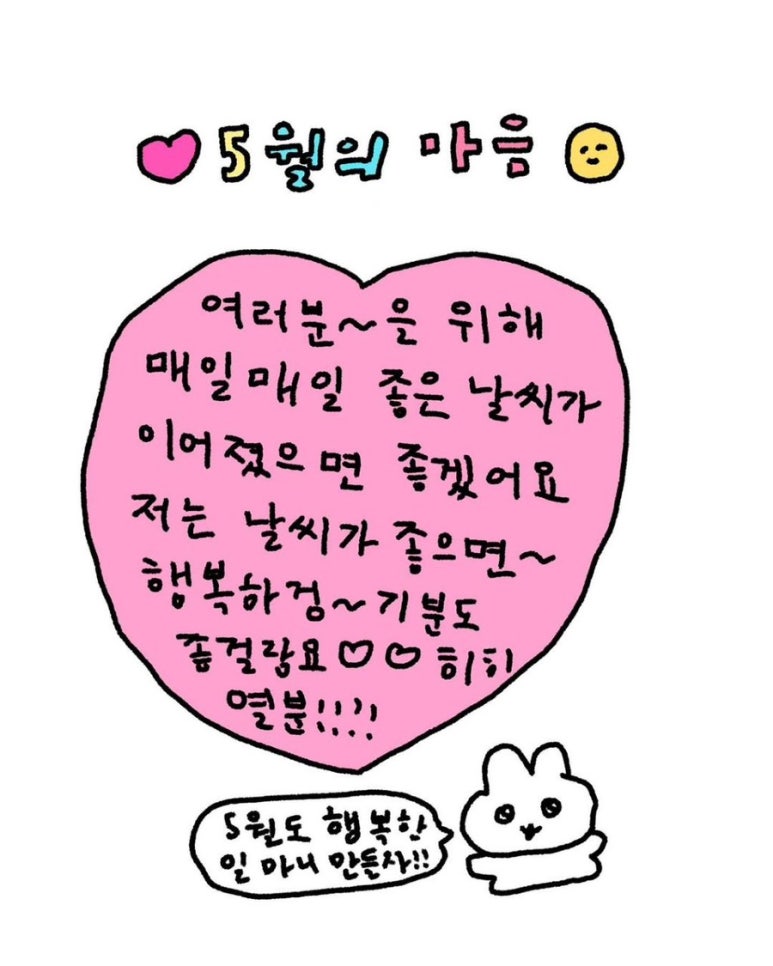 5월의 마음
여러분~을 위해
매일매일 좋은 날씨가
이어졌으면 좋겠어요
저는 날씨가 좋으면~
행복하겅~기분도
좋걸랑요♡♡히히
열분!!!!
5월도 행복한
일 마니 만들자!!